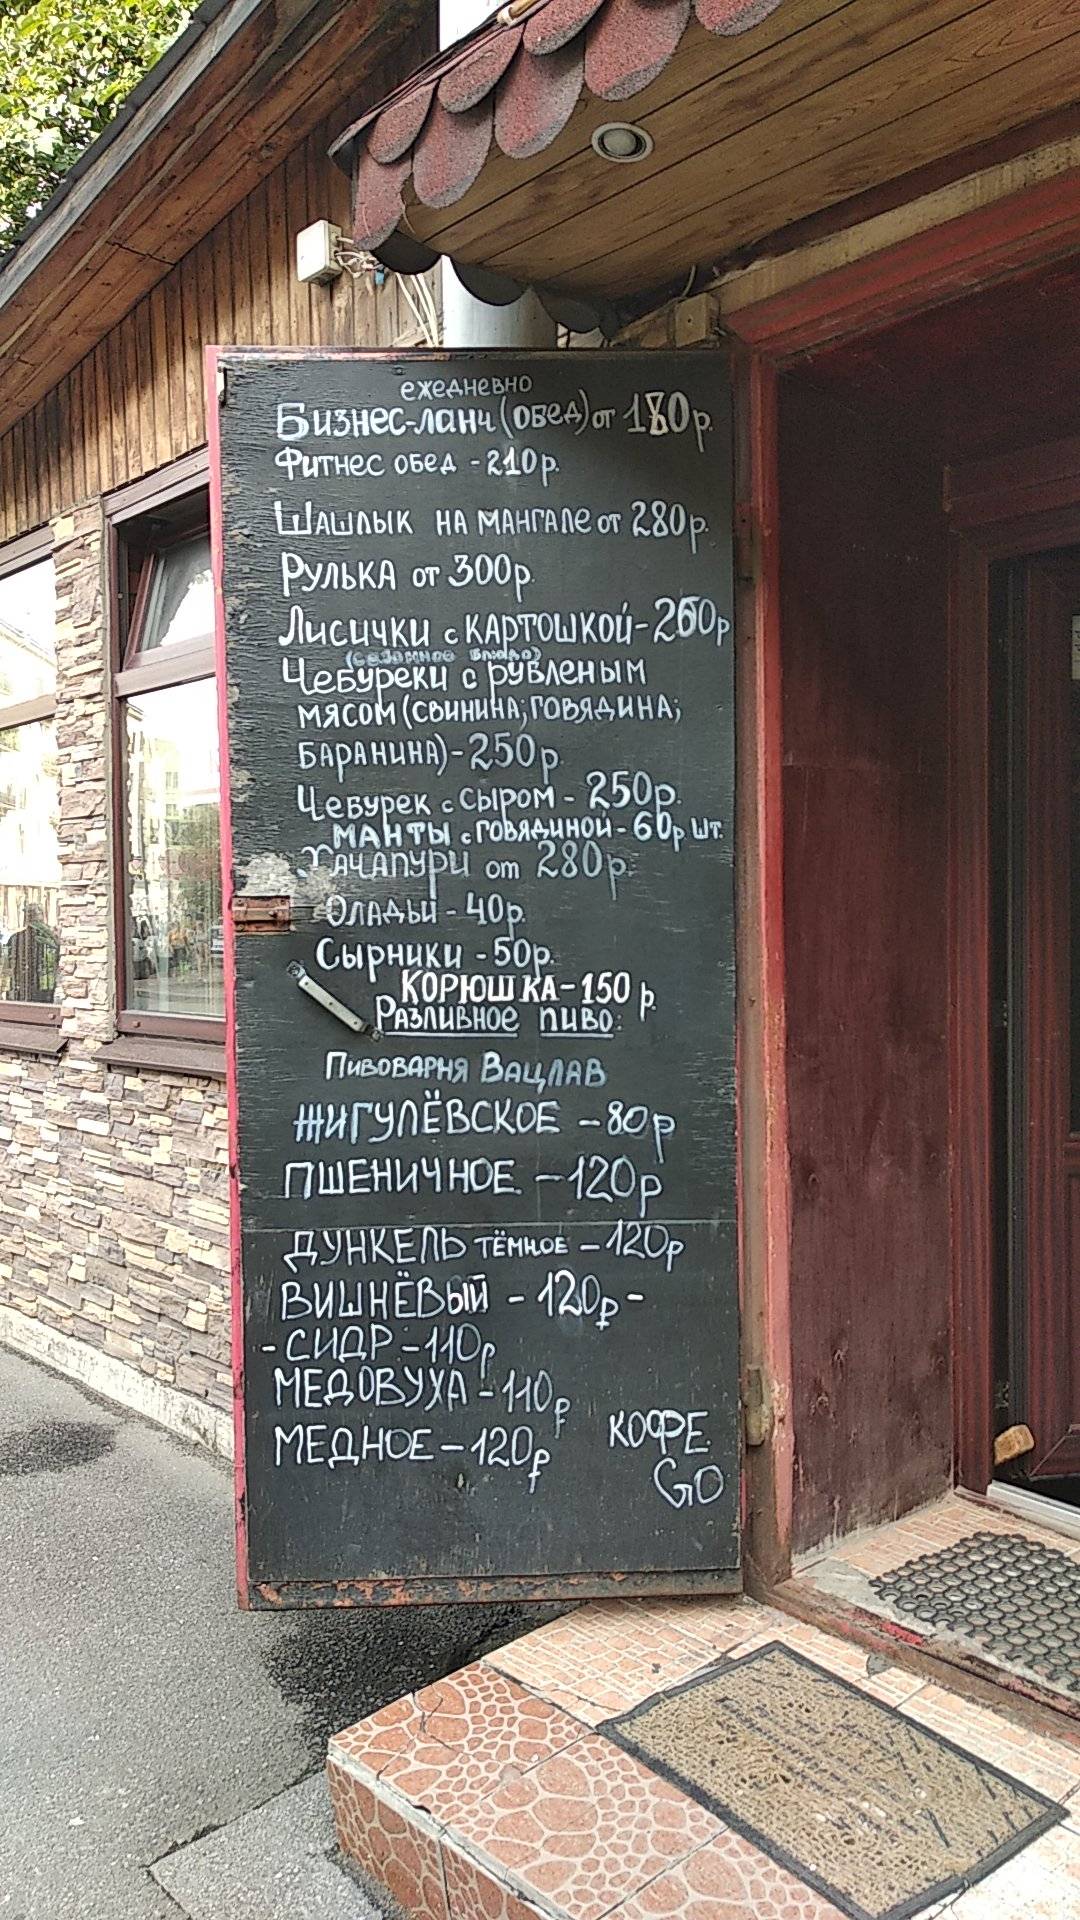 ежедневно
Бизнес-ланч (обед) от 180р.
Фитнес обед - 210р.
Шашлык на мангале от 280р.
Рулька от 300р.
Лисички с картошкой - 260р
(сезонное блюдо)
Чебуреки с рубленым
мясом (свинина; говядина;
баранина) - 250р.
Чебурек с сыром - 250р.
Манты с говядиной - 60р шт.
Хачапури от 280р.
Оладьи - 40р.
Сырники - 50р.
Корюшка - 150 р.
Разливное пиво:
Пивоварня Вацлав
ЖИГУЛЁВСКОЕ - 80р
ПШЕНИЧНОЕ - 120р
ДУНКЕЛЬ ТЁМНОЕ - 120р
ВИШНЁВЫЙ - 120р -
- СИДР - 110р
МЕДОВУХА - 110р
МЕДНОЕ - 120р
КОФЕ
GO